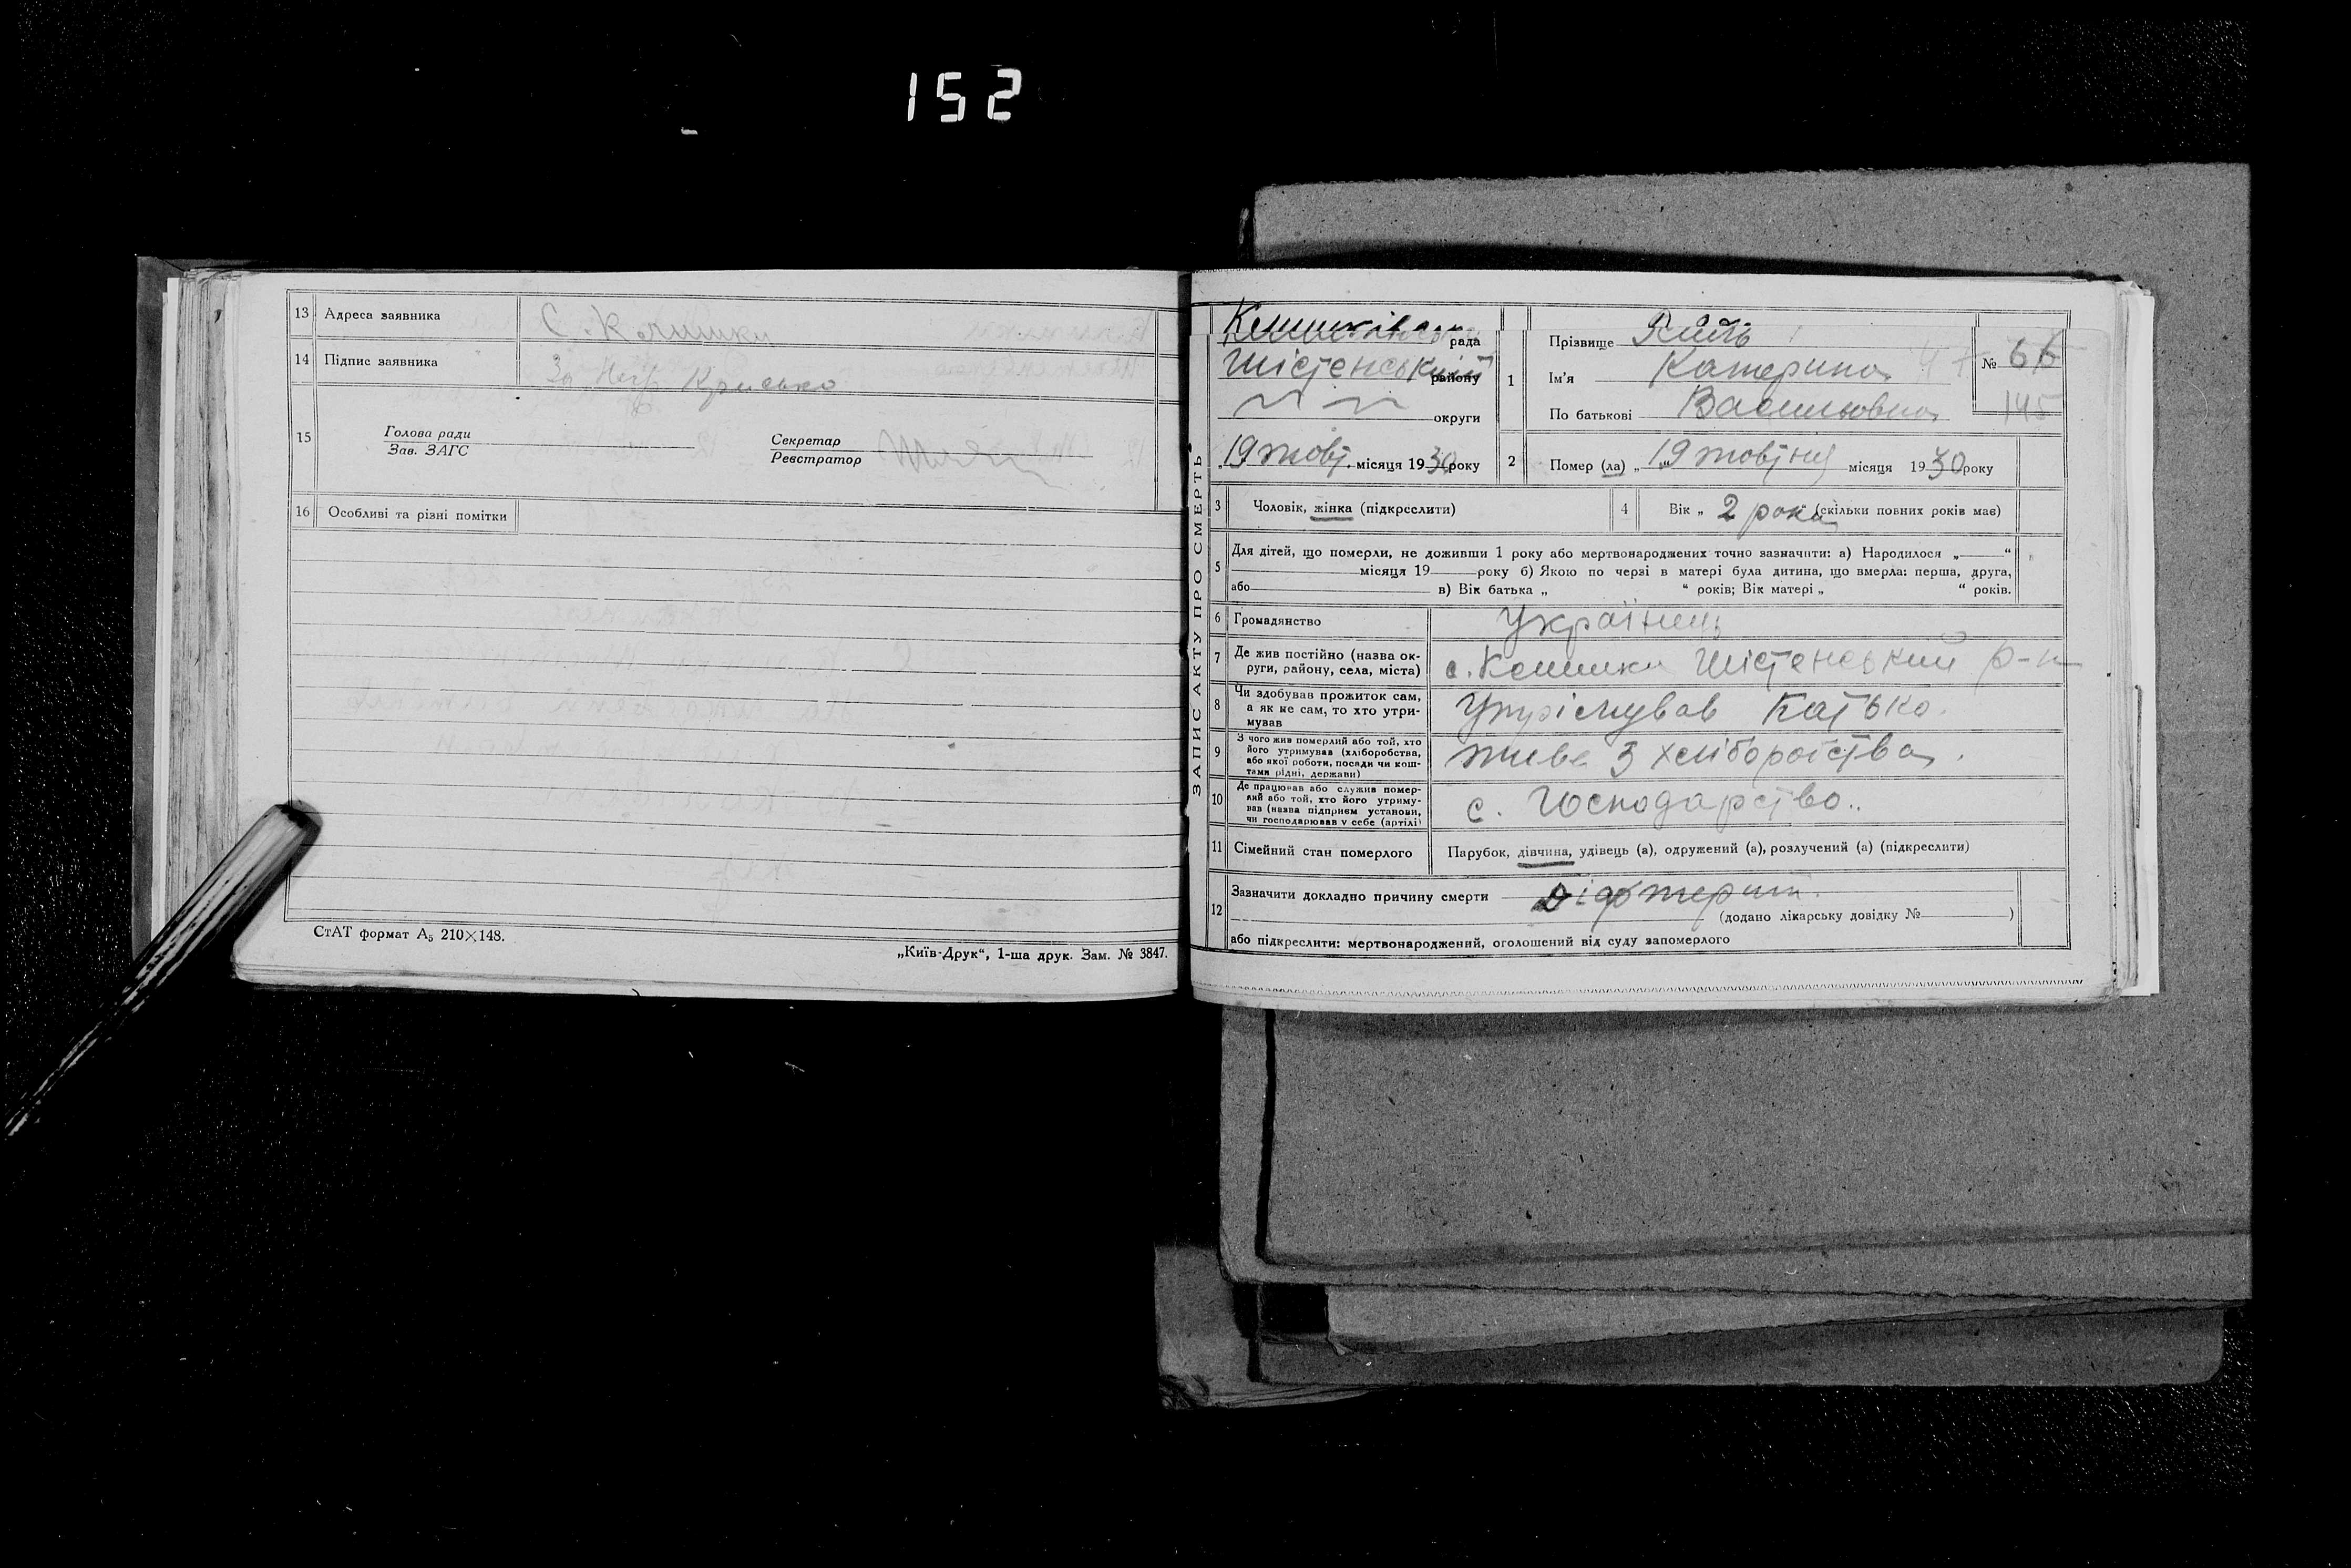 152
13 Адреса заявника С. Колишки
14 Підпис заявника За Крисько
15 Голова ради
Зав. ЗАГС
Секретар
Реєстратор
16 Особливі та різні помітки
СтАТ формат А₅ 210×148.
„Київ-Друк“, 1-ша друк. Зам. № 3847.
ЗАПИС АКТУ ПРО СМЕРТЬ
рада
району
округи
19 жовт. місяця 1930 року
1 Прізвище
Ім'я Катерина
По батькові Васильовна
№ 66
145
2 Помер (ла) „19 жовтня місяця 1930 року
3 Чоловік, жінка (підкреслити)
4 Вік „ 2 роки (скільки повних років має)
5 Для дітей, що померли, не доживши 1 року або мертвонароджених точно зазначити: а) Народилося „ “
місяця 19 року б) Якою по черзі в матері була дитина, що вмерла: перша, друга,
або в) Вік батька „ “ років; Вік матері „ “ років.
6 Громадянство Українець
7 Де жив постійно (назва ок-
руги, району, села, міста)
р-н
8 Чи здобував прожиток сам,
а як не сам, то хто утри-
мував
Утрімував батько.
9 З чого жив померлий або той, хто
його утримував (хліборобства,
або якої роботи, посади чи кош-
тами рідні, держави)
живе з
10 Де працював або служив помер-
лий або той, хто його утриму-
вав (назва підприєм установи,
чи господарював у себе (артілі)
с. Господарство..
11 Сімейний стан померлого Парубок, дівчина, удівець (а), одружений (а), розлучений (а) (підкреслити)
12 Зазначити докладно причину смерти Діфтерит.
(додано лікарську довідку № )
або підкреслити: мертвонароджений, оголошений від суду запомерлого